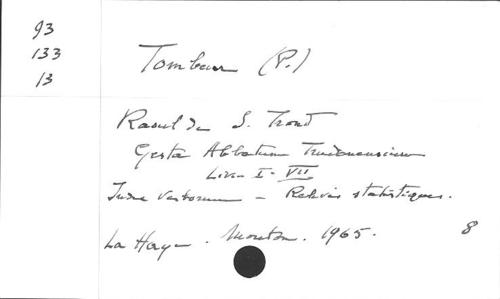 93
133
13
Tombeur (P.)
Raoul de S. Trond
Gesta Abbatum Trudonensium
Livr. I - VII
Index Verborum - Relevés statistiques.
La Haye. Mouton. 1965. 8